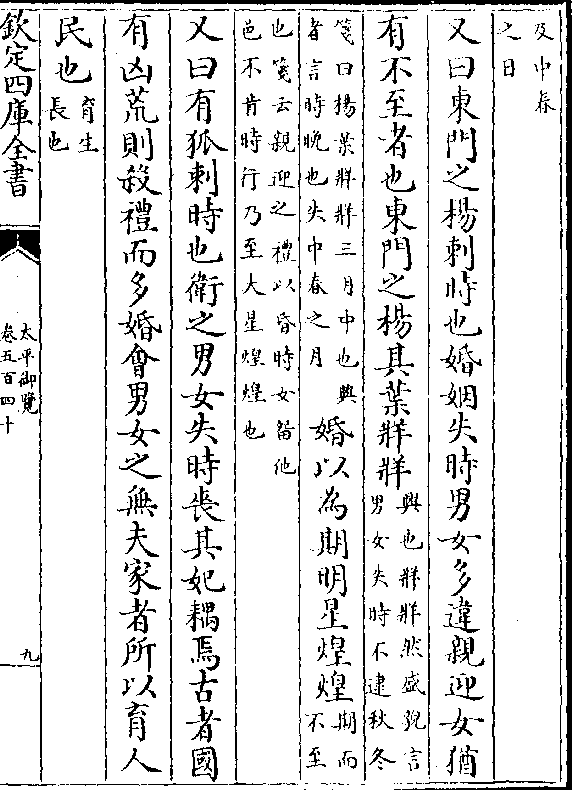 及中春
之日
又曰東門之楊刺時也婚姻失時男女多違親迎女猶
有不至者也東門之楊其葉牂牂
興也牂牂然盛貌言
男女失時不逮秋冬
箋曰楊葉牂牂三月中也興
者言時晚也失中春之月
婚以為期明星煌煌
期而
不至
也箋云親迎之禮以昏時女留他
邑不肯時行乃至大星煌煌也
又曰有狐刺時也衛之男女失時喪其妃耦焉古者國
有凶荒則殺禮而多婚會男女之無夫家者所以育人
民也
育生
長也
欽定四庫全書
太平御覽
卷五百四十
九